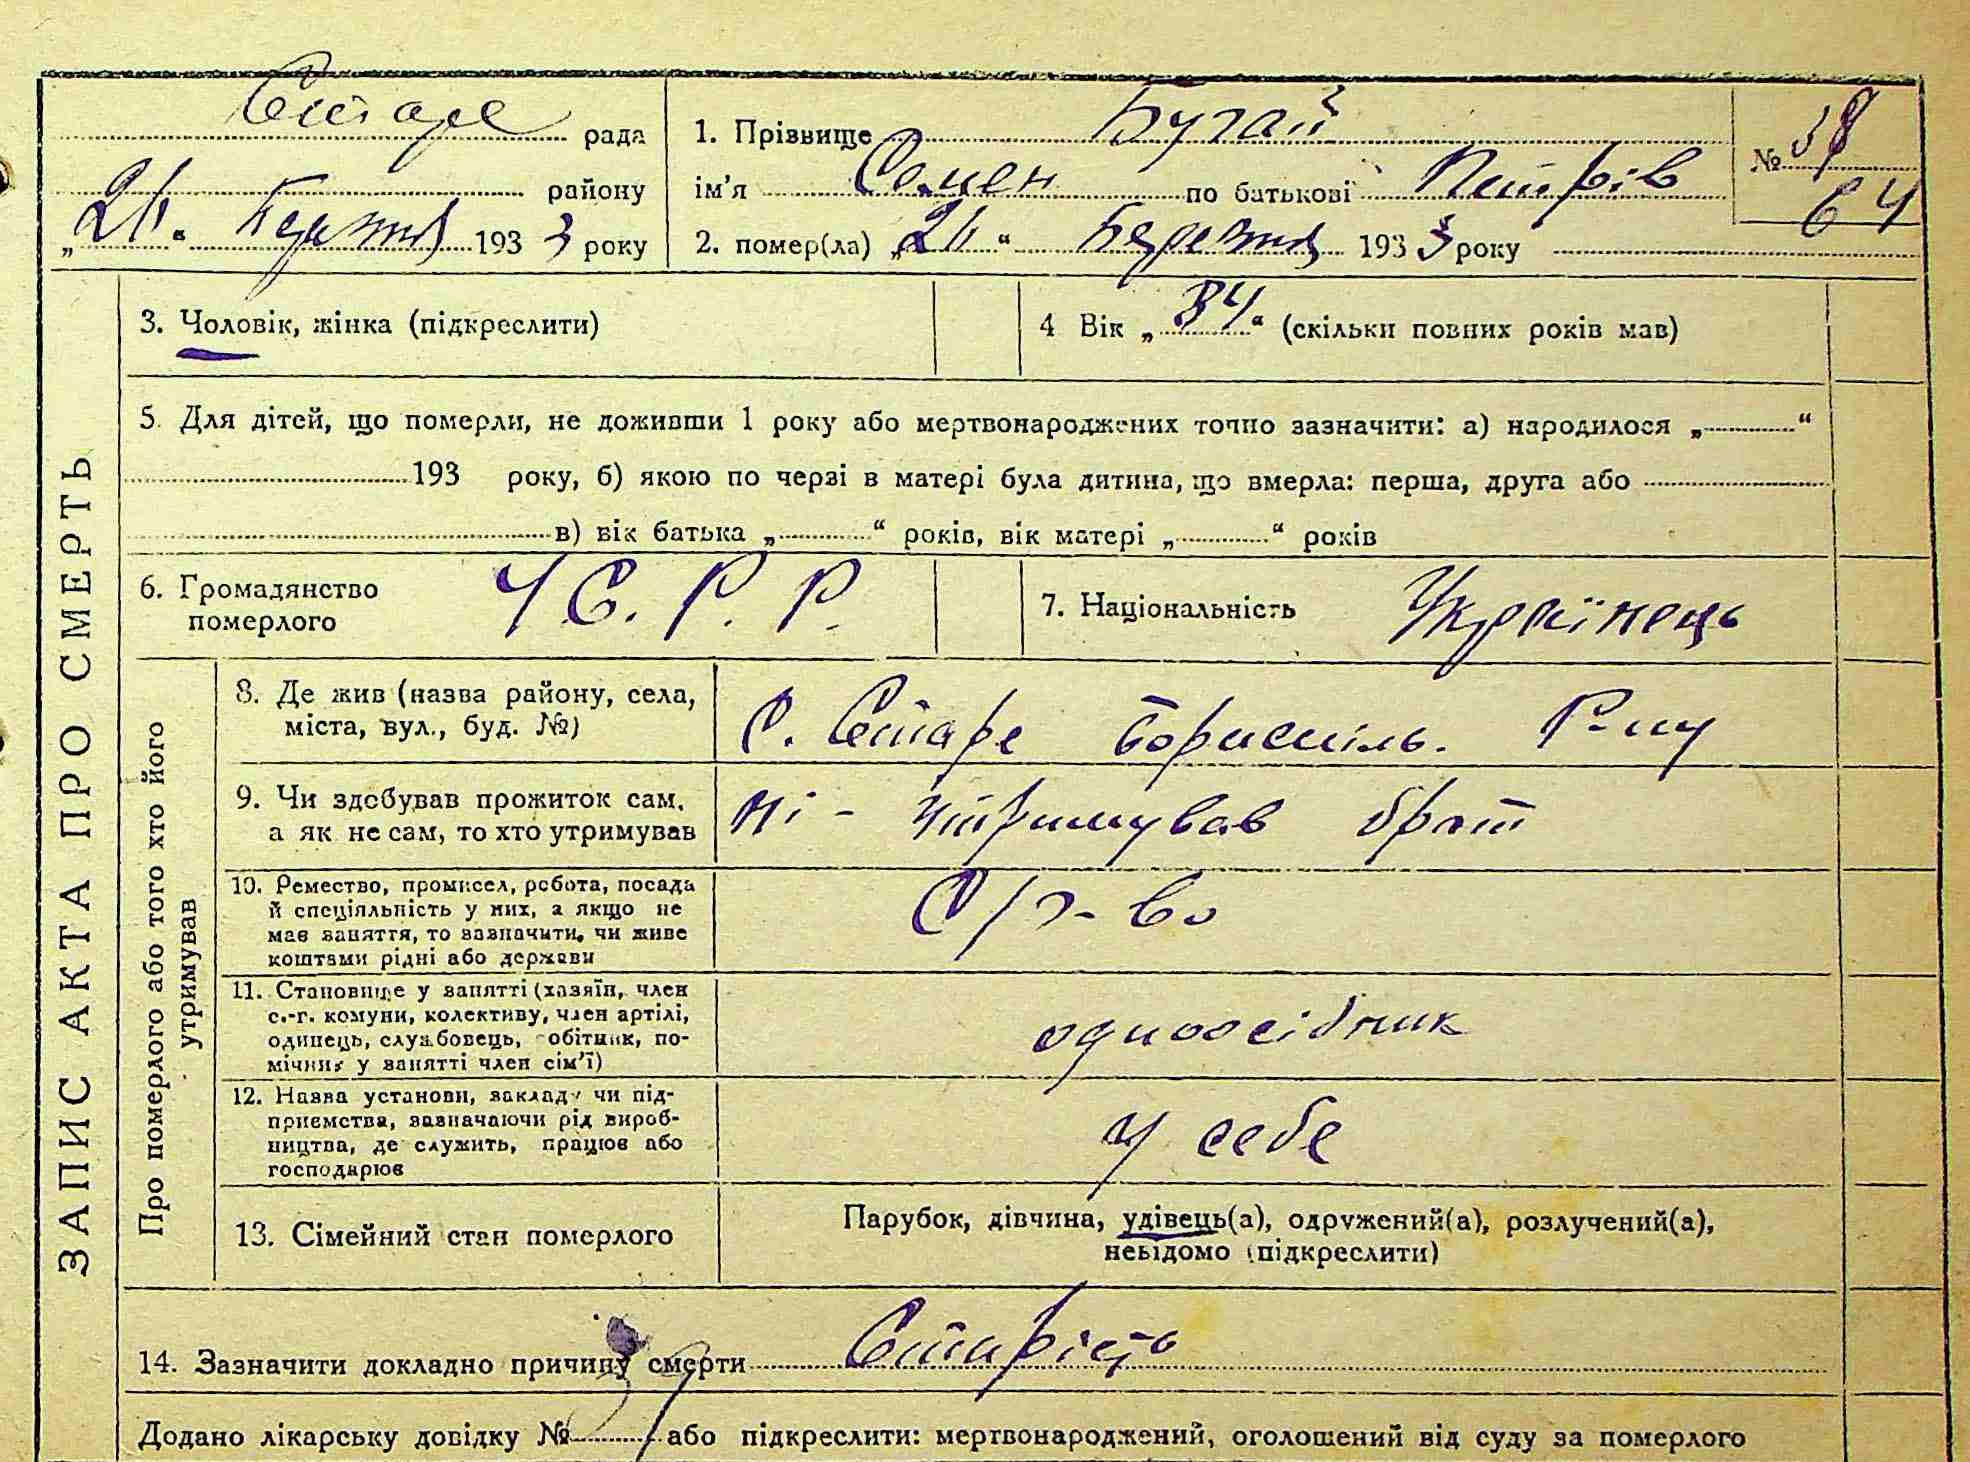 Старе рада
району
„26“ Березня 1933 року
1. Прізвище Бугай
ім’я Семен по батькові Петрів
2. помер(ла) „26“ Березня 1933 року
№ 38
64
ЗАПИС АКТА ПРО СМЕРТЬ
3. Чоловік, жінка (підкреслити)
4 Вік „84“ (скільки повних років мав)
5. Для дітей, що померли, не доживши 1 року або мертвонароджених точно зазначити: а) народилося „ “
193 року, б) якою по черзі в матері була дитина, що вмерла: перша, друга або
в) вік батька „ “ років, вік матері „ “ років
6. Громадянство
померлого
У С. Р. Р.
7. Національність Українець
Про померлого або того хто його
утримував
8. Де жив (назва району, села,
міста, вул., буд. №)
С. Старе Бориспіль. Р-ну
9. Чи здобував прожиток сам,
а як не сам, то хто утримував
Ні - утримував брат
10. Ремество, промисел, робота, посада
й спеціяльність у них, а якщо не
мав заняття, то зазначити, чи живе
коштами рідні або держави
С/г-во
11. Становище у занятті (хазяїн, член
с.-г. комуни, колективу, член артілі,
одинець, службовець, робітник, по-
мічник у занятті член сім’ї)
одноосібник
12. Назва установи, закладу чи під-
приємства, зазначаючи рід вироб-
ництва, де служить, працює або
господарює
у себе
13. Сімейний стан померлого
Парубок, дівчина, удівець(а), одружений(а), розлучений(а),
невідомо (підкреслити)
14. Зазначити докладно причину смерти Старість
Додано лікарську довідку № або підкреслити: мертвонароджений, оголошений від суду за померлого